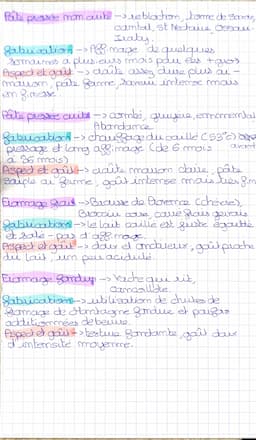 Pâte pressée non cuite → reblochon, tome de Savoie,
cantal, st Nectaire, Ossau-
Iraty.
Fabrication → Affinage de quelques
semaines a plusieurs mois
Aspect et goût → croûte assez dure plus au -
pâte ferme, saveur intense mais
Pâte pressée cuite → comté, gruyère, emmental
Abondance.
Fabrication → chauffage du caillé (53°c)
pressage et long affinage (de 6 mois
à 36 mois)
Aspect et goût → croûte maison claire, pâte
souple ou ferme, goût intense mais
Fromage frais → Brousse de Provence (chèvre),
Brocciu corse, carré frais gervais
Fabrications → le lait caillé est juste égoutté
et salé - pas d'affinage.
Aspect et goût → doux et onctueux, goût proche
du lait, un peu acidulé.
Fromage fondu → Vache qui rit,
Fabrications → utilisation de chutes de
fromage de Montagne fondue et parfois
additionnées de beurre.
Aspect et goût → texture fondante, goût doux
d'intensité moyenne.